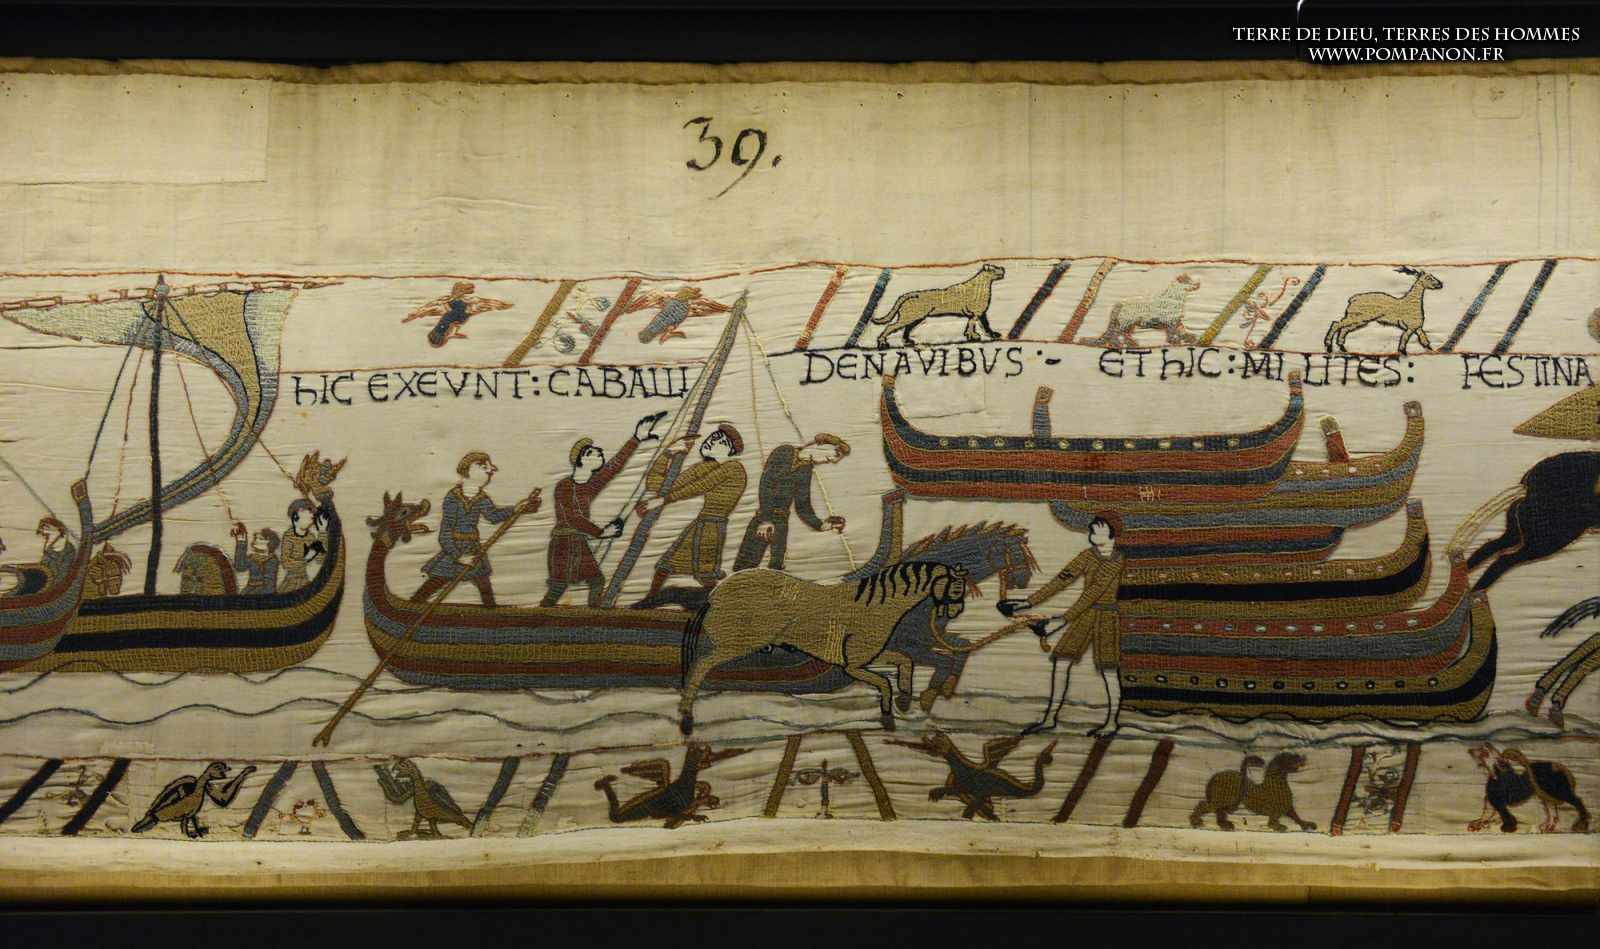 TERRE DE DIEU, TERRES DES HOMMES
WWW.POMPANON.FR
39.
hIC EXEVNT: CABALLI DENAVIBVS ·- ET hIC: MILITES: FESTINA